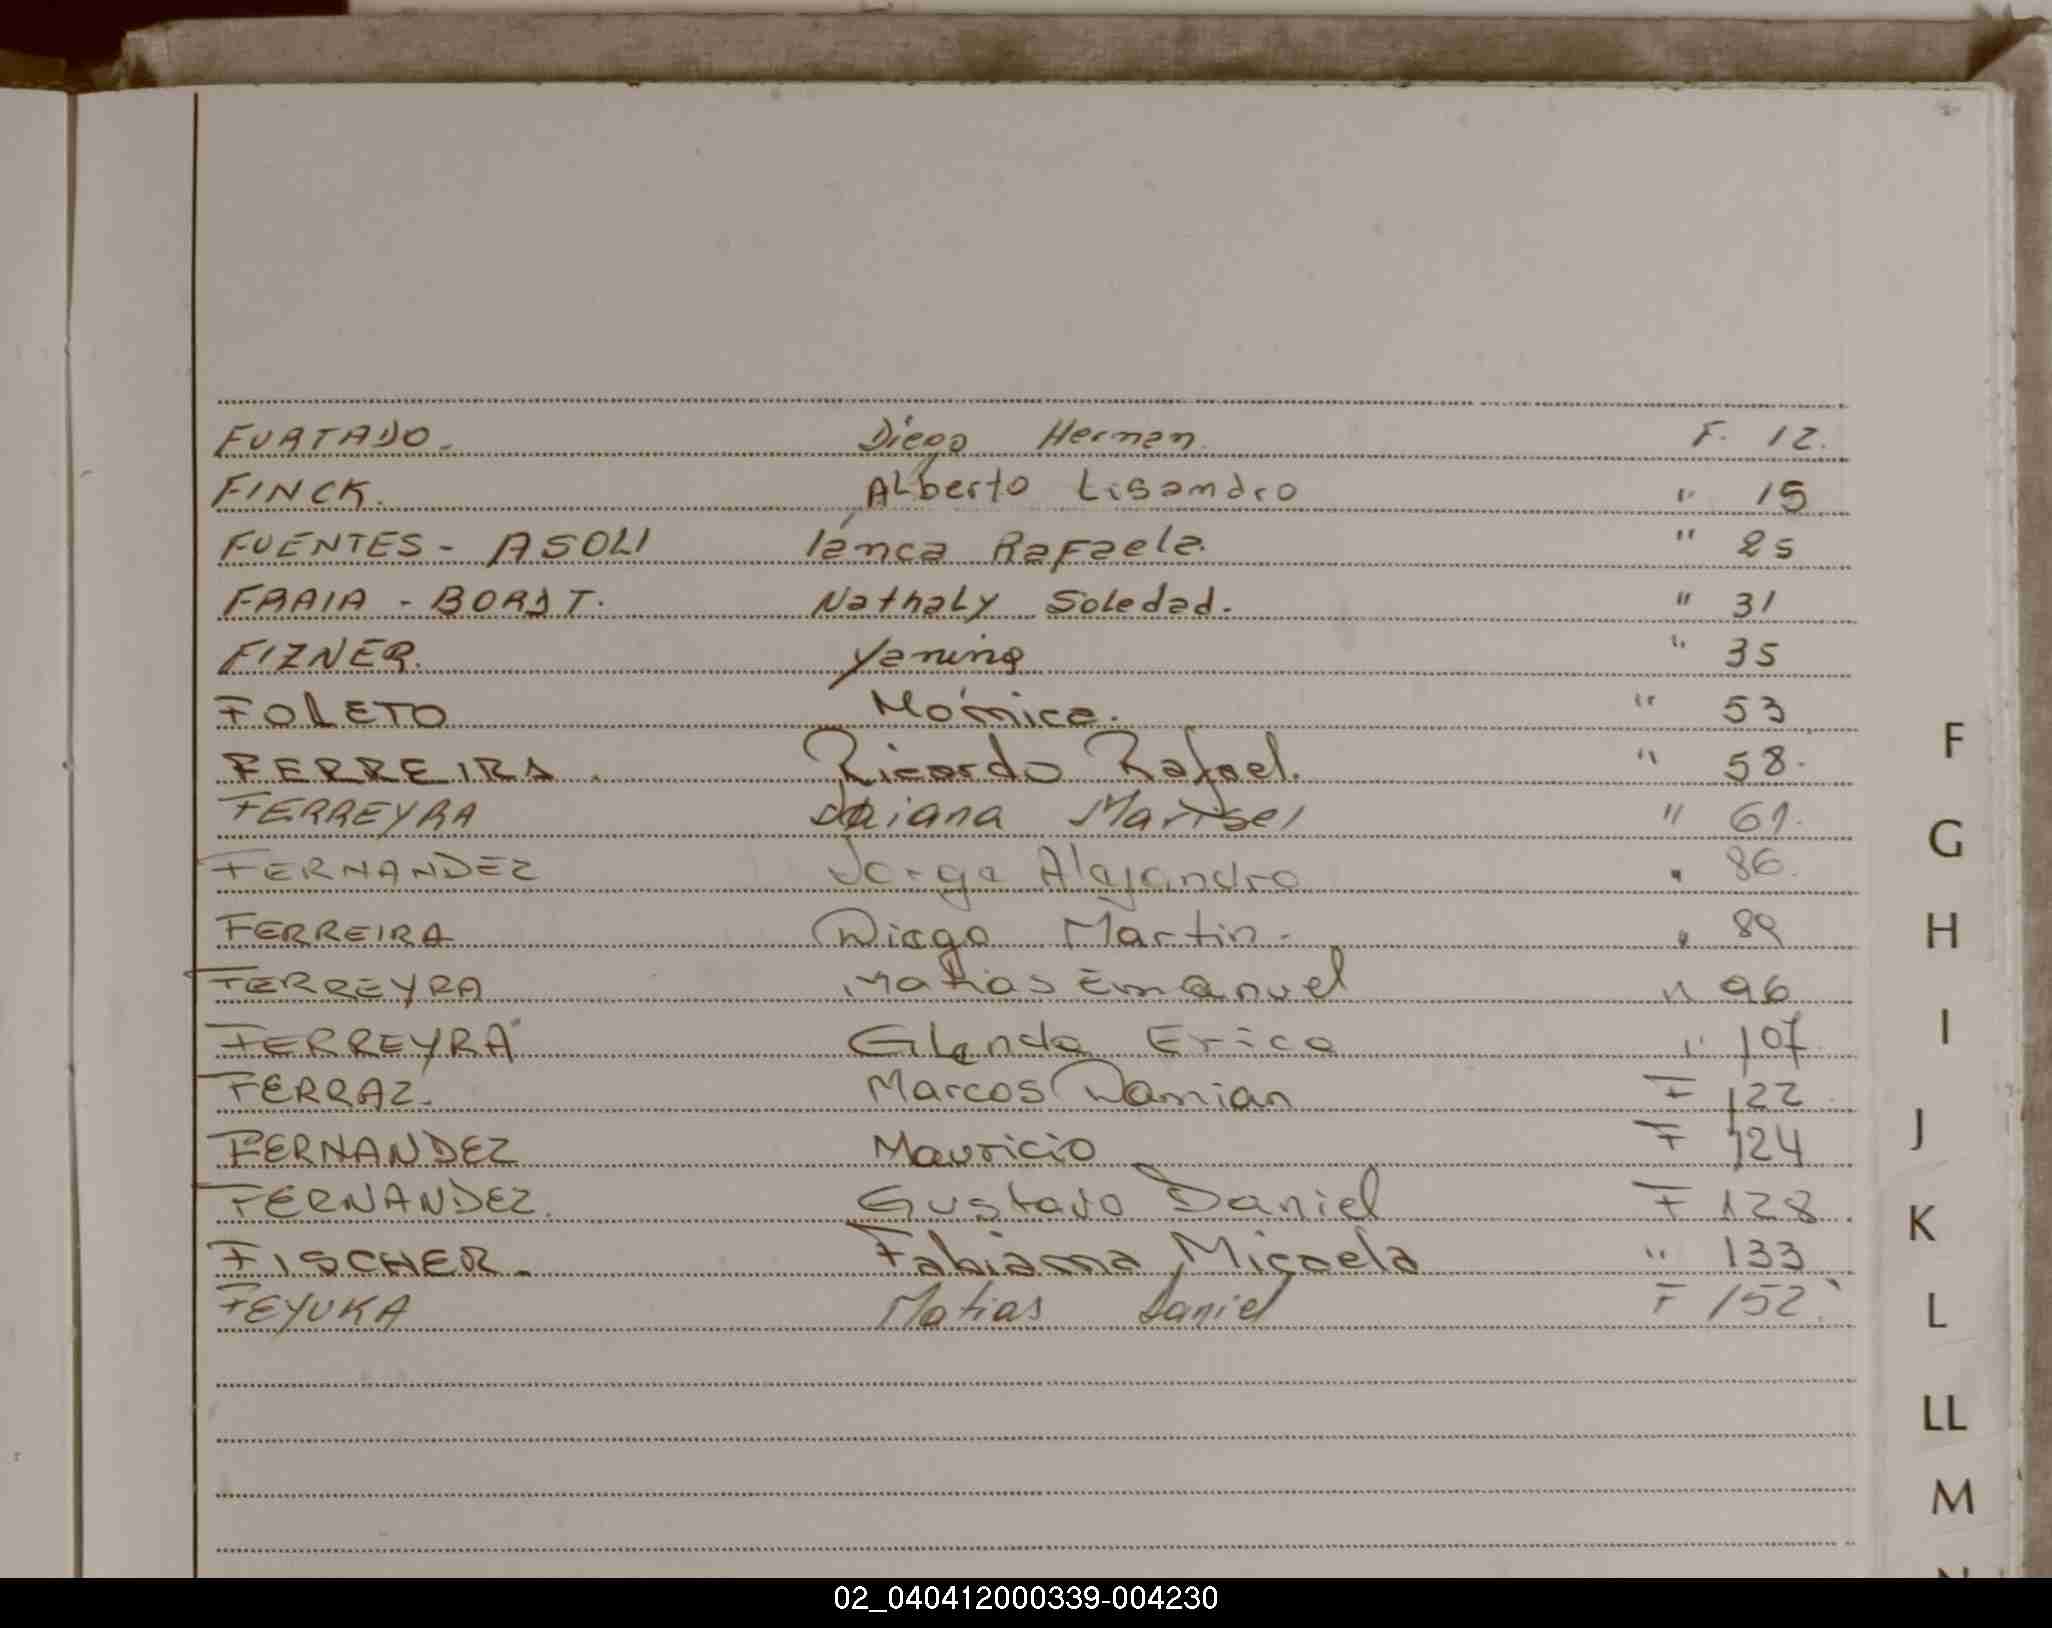 FURTADO. Diego Hernan. F. 12.
FINCK. Alberto Lisandro " 15
FUENTES - ASOLI Iánca Rafaela. " 25
FRAIA - BORST. Nathaly Soledad. " 31
FIZNER. Yanina " 35
FOLETO Mónica. " 53
FERREIRA. Ricardo Rafael. " 58.
FERREYRA Daiana Marisel " 61.
FERNANDEZ Jorge Alejandro " 86.
FERREIRA Diego Martin. " 89
FERREYRA Matias Emanuel " 96
FERREYRA Glenda Erica " 107
FERRAZ. Marcos Damian F 122
FERNANDEZ Mauricio F 124
FERNANDEZ. Gustavo Daniel F 128.
FISCHER. Fabiana Micaela " 133
FEYUKA Matias Daniel F 152.
F
G
H
I
J
K
L
LL
M
02_040412000339-004230